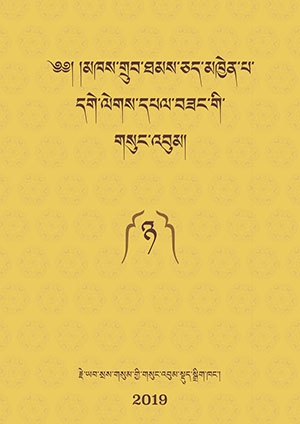 ༄༅། །མཁས་གྲུབ་ཐམས་ཅད་མཁྱེན་པ་
དགེ་ལེགས་དཔལ་བཟང་གི་
གསུང་འབུམ།
ཉ
རྗེ་ཡབ་སྲས་གསུམ་གྱི་གསུང་འབུམ་སྡུད་སྒྲིག་ཁང་།
2019